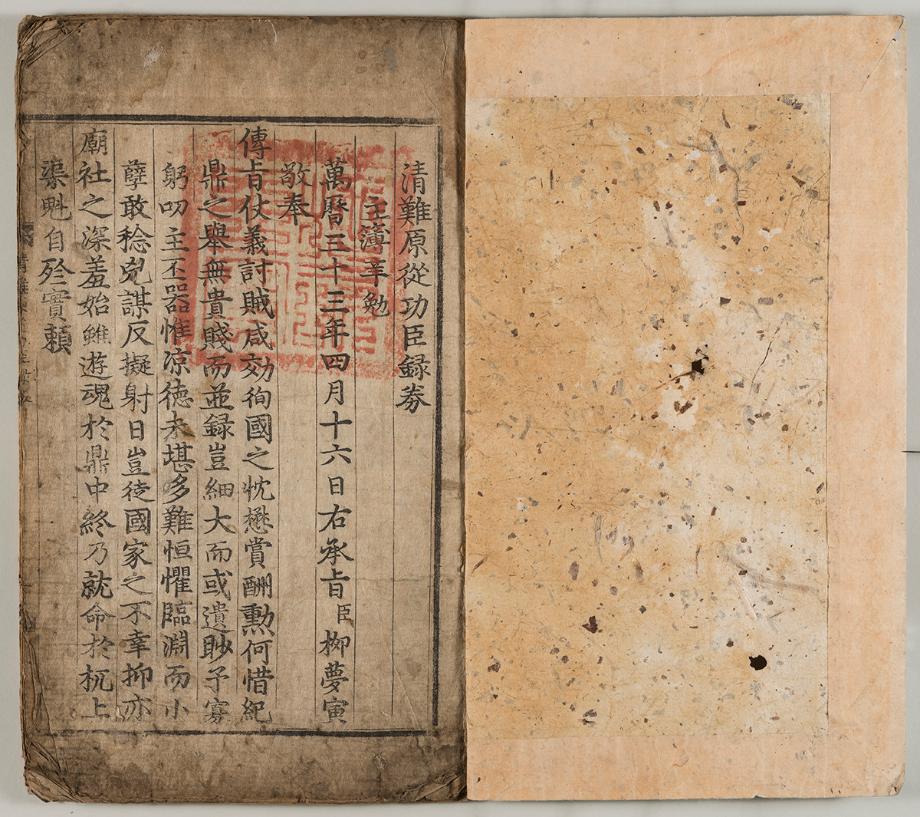 清難原從功臣錄券
主簿辛勉
萬曆三十三年四月十六日右承旨臣栁夢寅
敬奉
傳旨仗義討賊咸効徇國之忱懋賞酬勲何惜紀
鼎之舉無貴賤而並録豈細大而或遺眇予寡
躬叨主丕器惟凉徳未堪多難恒懼臨淵而小
孽敢稔兇謀反擬射日豈徒國家之不幸抑亦
廟社之深羞始雖遊魂於鼎中終乃就命於杌上
渠魁自殄實頼